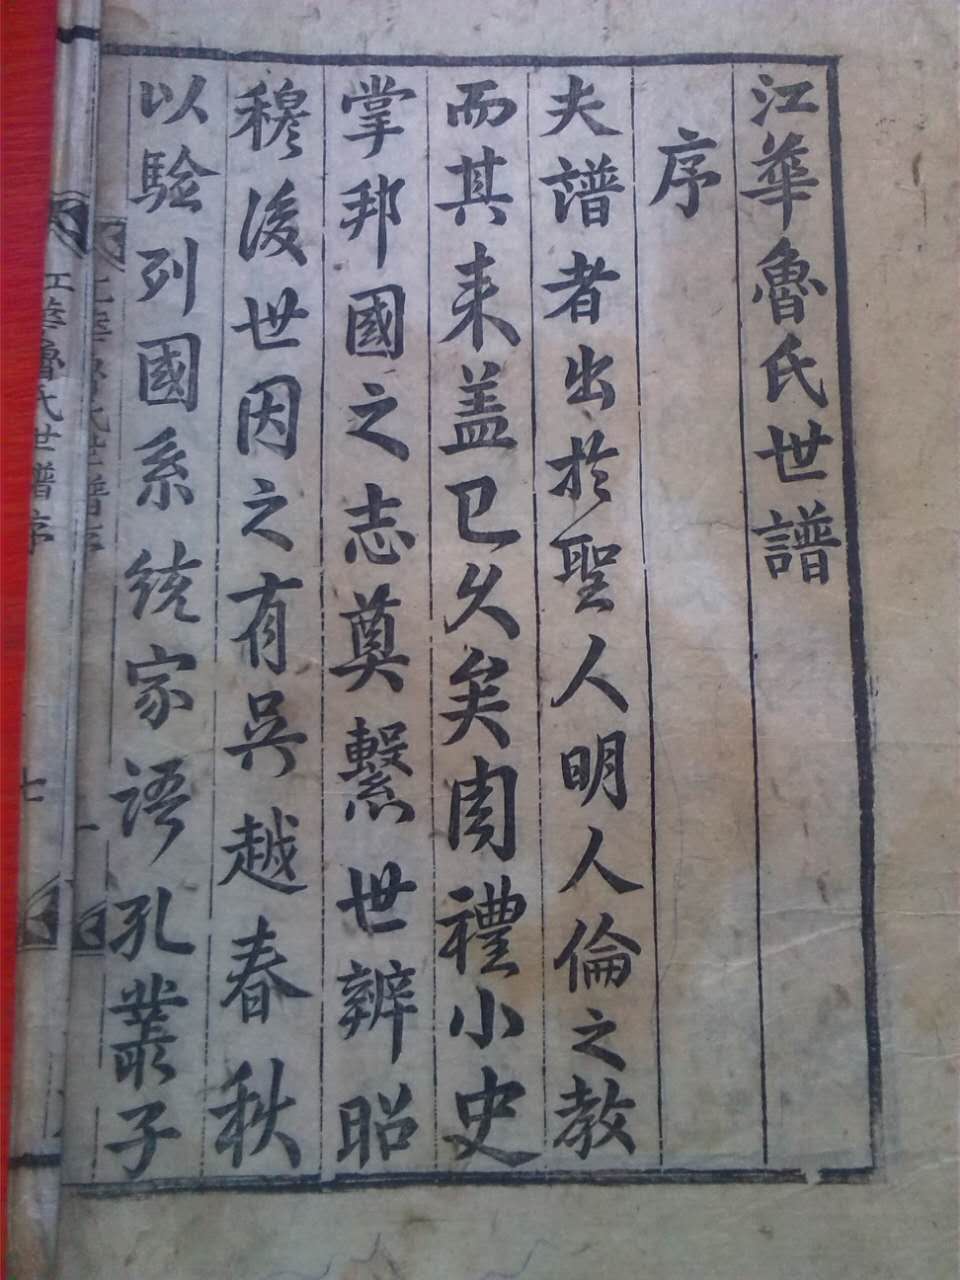 江華魯氏世譜
序
夫譜者出於聖人明人倫之教
而其来盖已久矣周禮小史
掌邦國之志奠繫世辨昭
穆後世因之有吳越春秋
以驗列國系統家語孔叢子
江華魯氏世譜序
一
江華魯氏世譜序
七